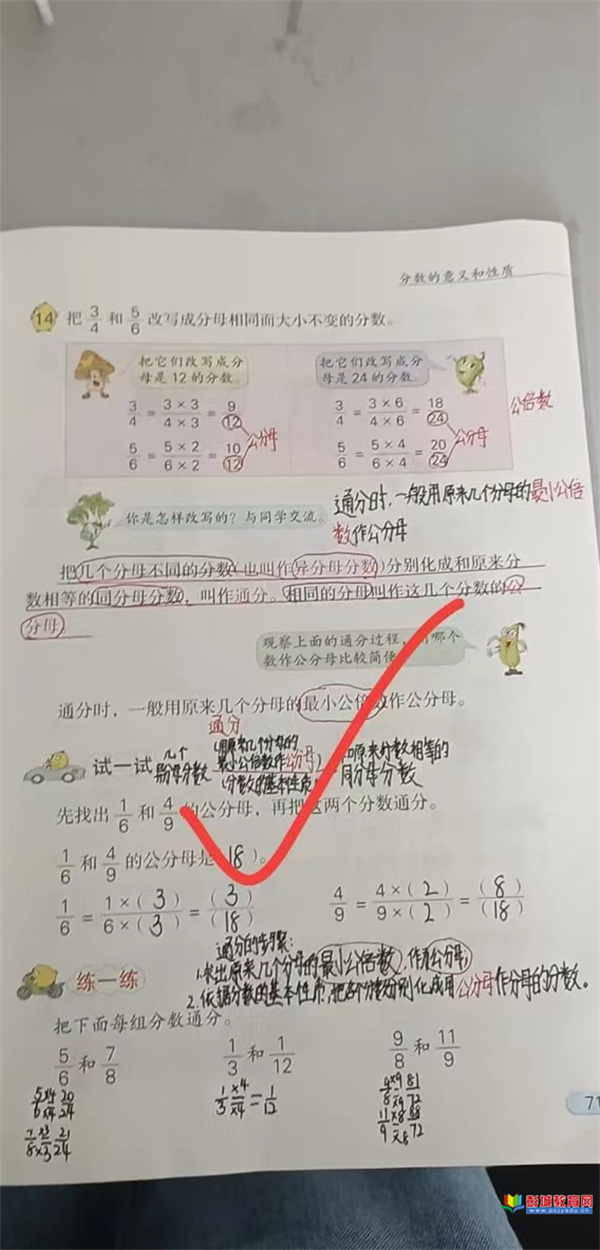 分数的意义和性质
14 把 3/4 和 5/6 改写成分母相同而大小不变的分数。
把它们改写成分
母是 12 的分数。
3/4 = 3×3/4×3 = 9/12
5/6 = 5×2/6×2 = 10/12
公分母
把它们改写成分
母是 24 的分数。
3/4 = 3×6/4×6 = 18/24
5/6 = 5×4/6×4 = 20/24
公分母
公倍数
你是怎样改写的？与同学交流。
通分时，一般用原来几个分母的最小公倍
数作公分母
把几个分母不同的分数(也叫作异分母分数)分别化成和原来分
数相等的同分母分数，叫作通分。相同的分母叫作这几个分数的公
分母。
观察上面的通分过程，
哪个
数作公分母比较简便
通分时，一般用原来几个分母的最小公倍数作公分母。
通分
试一试
几个
异分母分数
(用原来几个分母的
最小公倍数作公分母)
(分数的基本性质)
和原来分数相等的
同分母分数
先找出 1/6 和 4/9 的公分母，再把这两个分数通分。
1/6 和 4/9 的公分母是 18 )。
1/6 = 1×(3)/6×(3) = (3)/(18)
4/9 = 4×(2)/9×(2) = (8)/(18)
通分的步骤：
1.求出原来几个分母的最小公倍数，作公分母；
练一练
2.依据分数的基本性质，把各个分数分别化成用公分母作分母的分数。
把下面每组分数通分。
5/6 和 7/8
1/3 和 1/12
9/8 和 11/9
5×4/6×4 20/24
7×3/8×3 21/24
1/3 ×4/×4 = 1/12
9×9/8×9 81/72
11×8/9×8 88/72
71
彭城教育网
www.pcjyedu.cn